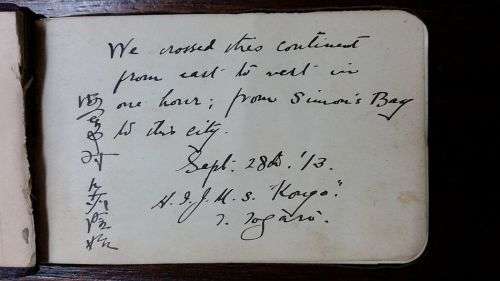 We crossed this continent
from east to west in
one hour; from Simon's Bay
to this city.
Sept. 28th. '13.
H.I.J.M.S. "Kongo".
T. Togari.